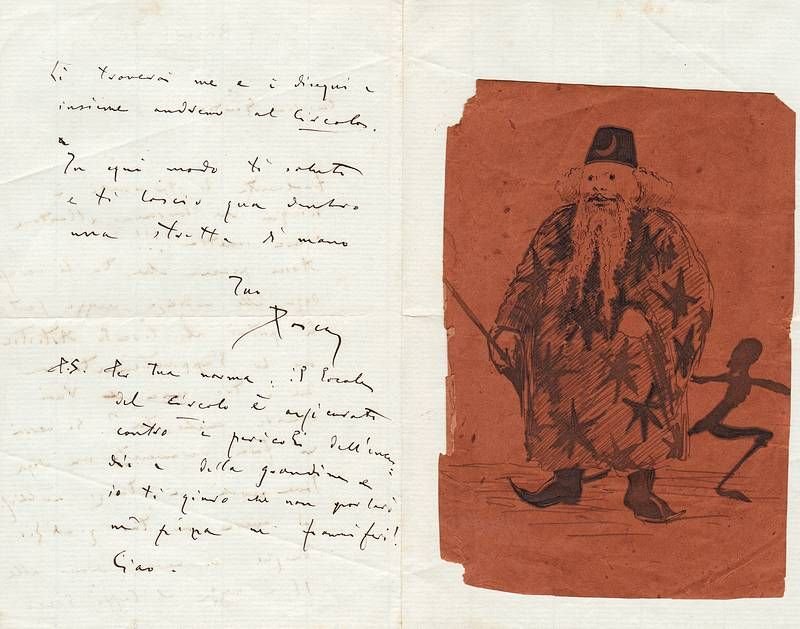 Lì troverai me e i disegni e
insieme andremo al Circolo.
In ogni modo ti saluto
e ti lascio qua dentro
una stretta di mano
Tuo
P.S. Per tua norma: il locale
del circolo è assicurato
contro i pericoli dell'incen-
dio e della grandine e
io ti giuro che non porterò
nè pipa nè fiammiferi!
Ciao.